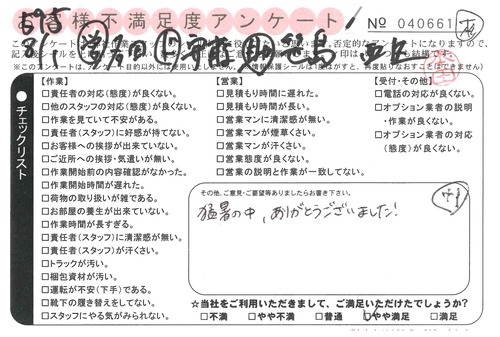 お客様不満足度アンケート
№ 040661
【作業】
□責任者の対応(態度)が良くない。
□他のスタッフの対応(態度)が良くない。
□作業を見ていて不安がある。
□責任者(スタッフ)に好感が持てない。
□お客様への挨拶が出来ていない。
□ご近所への挨拶・気遣いが無い。
□作業開始前の内容確認がなかった。
□作業開始時間が遅れた。
□荷物の取り扱いが雑である。
□お部屋の養生が出来ていない。
□作業時間が長すぎる。
□責任者(スタッフ)に清潔感が無い。
□責任者(スタッフ)が汗くさい。
□トラックが汚い。
□梱包資材が汚い。
□運転が不安(下手)である。
□靴下の履き替えをしてない。
□スタッフにやる気がみられない。
【営業】
□見積もり時間に遅れた。
□見積もり時間が長い。
□営業マンに清潔感が無い。
□営業マンが煙草くさい。
□営業マンが汗くさい。
□営業態度が良くない。
□営業の説明と作業が一致してない。
【受付・その他】
□電話の対応が良くない。
□オプション業者の説明
・作業が良くない。
□オプション業者の対応
(態度)が良くない。
チェックリスト
その他、ご意見・ご要望等ありましたらお書き下さい。
猛暑の中、ありがとうございました!
☆当社をご利用いただきまして、ご満足いただけたでしょうか?
□不満 □やや不満 □普通 □やや満足 □満足